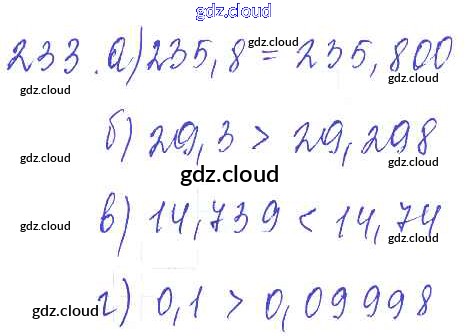 gdz.cloud
233. а) 235,8 = 235,800
gdz.cloud
gdz.cloud
б) 29,3 > 29,298
gdz.cloud
gdz.cloud
gdz.cloud
в) 14,739 < 14,74
gdz.cloud
gdz.cloud
г) 0,1 > 0,09998
gdz.cloud
gdz.cloud